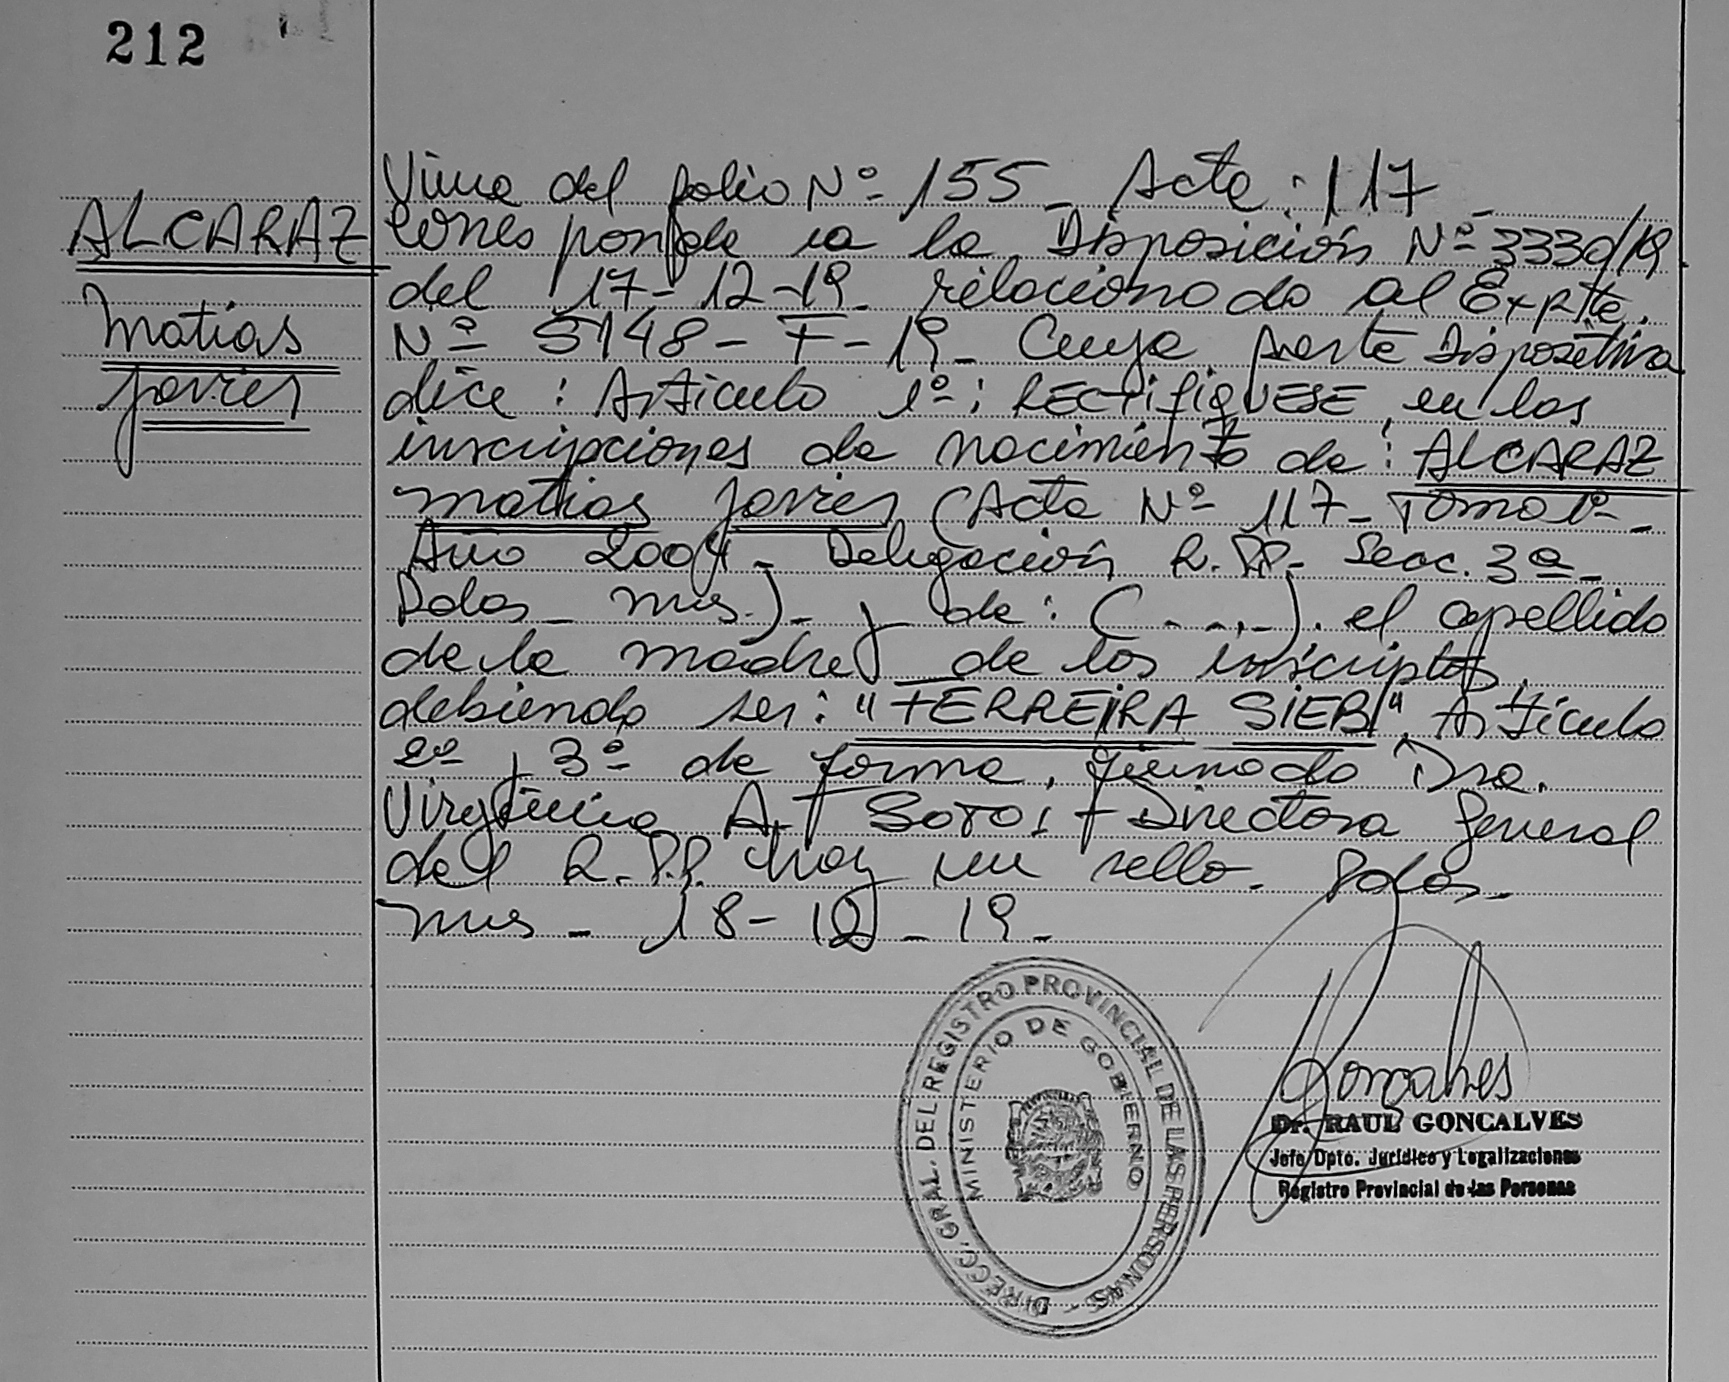 212
ALCARAZ
Matias
Javier
Viene del folio Nº 155 - Acta: 117 -
corresponde a la Disposición Nº 3330/19.
del 17-12-19 - relacionado al Expte.
Nº 5148 - F - 19 - Cuya parte Dispositiva
dice: Articulo 1º: RECTIFIQUESE en las
inscripciones de nacimiento de: ALCARAZ
Matias Javier (Acta Nº 117 - Tomo 1º -
Año 2004 - Delegación R.P.P. Secc. 3ª -
Pdas - Mns.) - y de: (- - . -). el apellido
de la madre de los inscriptos,
debiendo ser: "FERREIRA SIEB". Articulo
2º y 3º de forma. firmado Dra.
Virginia A. Soto: - Directora General
del R.P.P. hay un sello. Pdas.
Mns - 18-12-19 -
Goncalves
Dr. RAUL GONCALVES
Jefe Dpto. Jurídico y Legalizaciones
Registro Provincial de las Personas
DIRECC. GRAL. DEL REGISTRO PROVINCIAL DE LAS PERSONAS -
MINISTERIO DE GOBIERNO